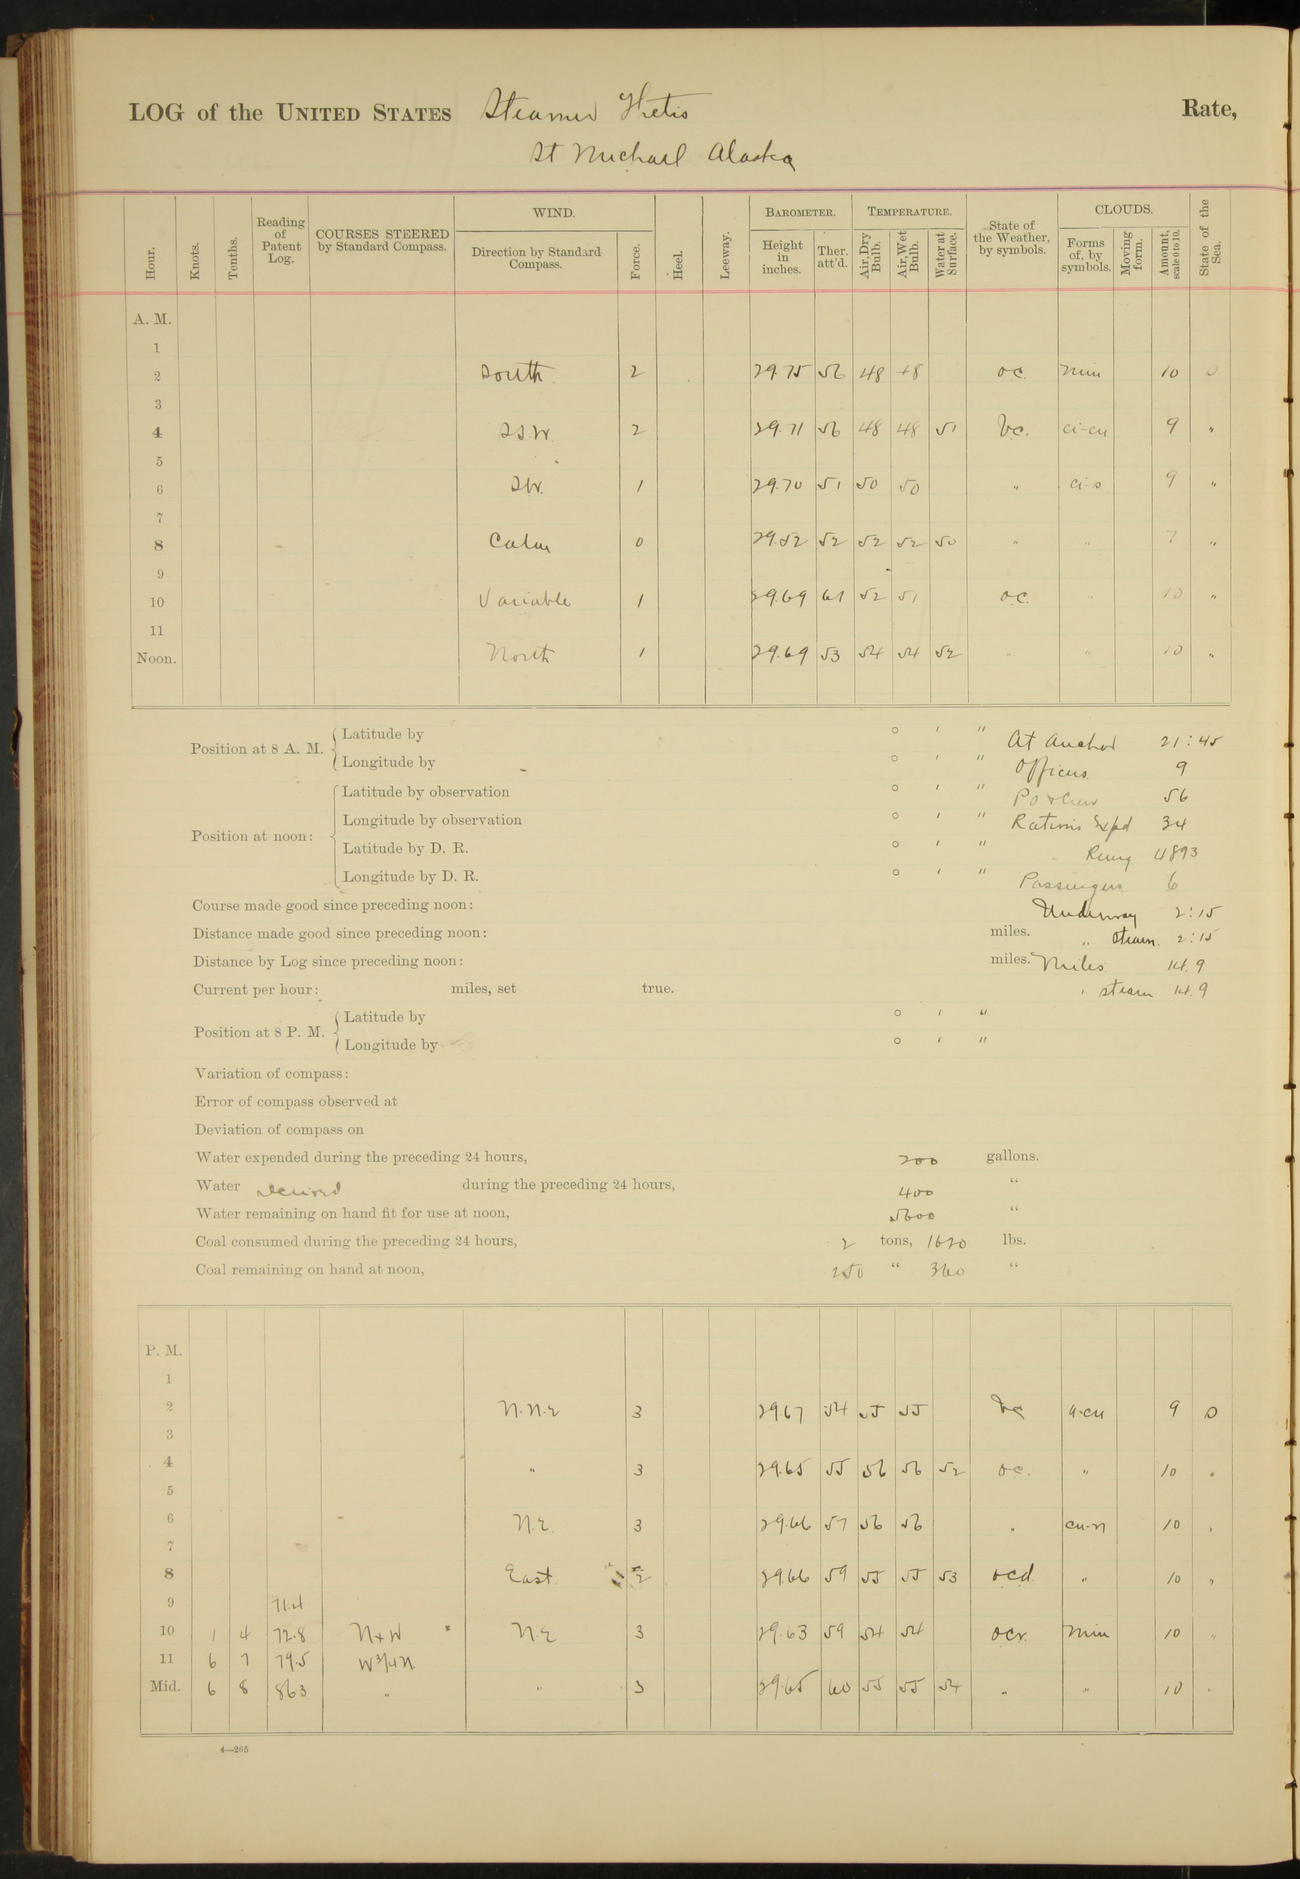 LOG of the UNITED STATES Steamer Thetis Rate,
St Michael Alaska
Hour. Knots. Tenths. Reading of Patent Log. COURSES STEERED by Standard Compass. WIND. Direction by Standard Compass. Force. Heel. Leeway. BAROMETER. Height in inches. Ther. att'd. TEMPERATURE. Air, Dry Bulb. Air, Wet Bulb. Water at Surface. State of the Weather, by symbols. CLOUDS. Forms of, by symbols. Moving form. Amount, scale 0 to 10. State of the Sea.
A. M.
1
2 South 2 29.75 56 48 48 o.c. Nim 10 0
3
4 SSW. 2 29.71 56 48 48 51 b.c. ci-cu 9 "
5
6 SW. 1 29.70 51 50 50 " ci-s 9 "
7
8 Calm 0 29.52 52 52 52 50 " " 7 "
9
10 Variable 1 29.69 61 52 51 o.c. " 10 "
11
Noon. North 1 29.69 53 54 54 52 " " 10 "
Position at 8 A. M. Latitude by ° ′ ″ At Anchor 21:45
Longitude by ° ′ ″ Officers 9
Position at noon: Latitude by observation ° ′ ″ P.O & Crew 56
Longitude by observation ° ′ ″ Rations Expd 34
Latitude by D. R. ° ′ ″ Remg 4893
Longitude by D. R. ° ′ ″ Passengers 6
Course made good since preceding noon: Underway 2:15
Distance made good since preceding noon: miles. " Steam. 2:15
Distance by Log since preceding noon: miles. Miles 14.9
Current per hour: miles, set true. " steam 14.9
Position at 8 P. M. Latitude by ° ′ ″
Longitude by ° ′ ″
Variation of compass:
Error of compass observed at
Deviation of compass on
Water expended during the preceding 24 hours, 200 gallons.
Water during the preceding 24 hours, 400 "
Water remaining on hand fit for use at noon, 5600 "
Coal consumed during the preceding 24 hours, 2 tons, 1620 lbs.
Coal remaining on hand at noon, 250 " 360 "
P. M.
1
2 N.N.E 3 29.67 54 55 55 bc ci-cu 9 0
3
4 " 3 29.65 55 56 56 52 o.c. " 10 "
5
6 N.E. 3 29.66 57 56 56 " cu-n 10 "
7
8 East 2 29.66 59 55 55 53 ocd " 10 "
9 71.4
10 1 4 72.8 NxW N.E 3 29.63 59 54 54 ocr. Nim 10 "
11 6 7 79.5 W3/4N
Mid. 6 8 86.3 " " 3 29.65 60 55 55 54 " " 10 "
4—265